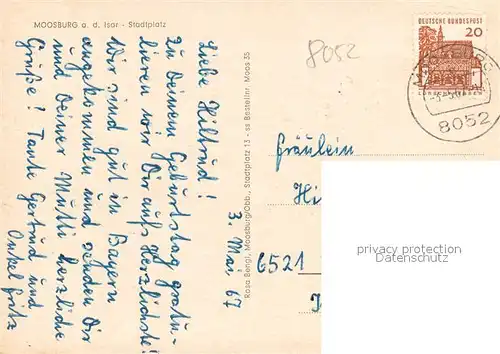 MOOSBURG a. d. Isar - Stadtplatz
3. Mai 67
Liebe Hiltrud!
Zu Deinem Geburtstag gratu-
lieren wir Dir aufs Herzlichste!
Wir sind gut in Bayern
angekommen und senden Dir
und Deiner Mutti herzliche
Grüße! Tante Gertrud und
Onkel Fritz
Rosa Bengl, Moosburg/Obb., Stadtplatz 13 - ss Bestellnr. Moos 35
8052
DEUTSCHE BUNDESPOST
20
8052
Fräulein
Hi
6521
privacy protection
Datenschutz